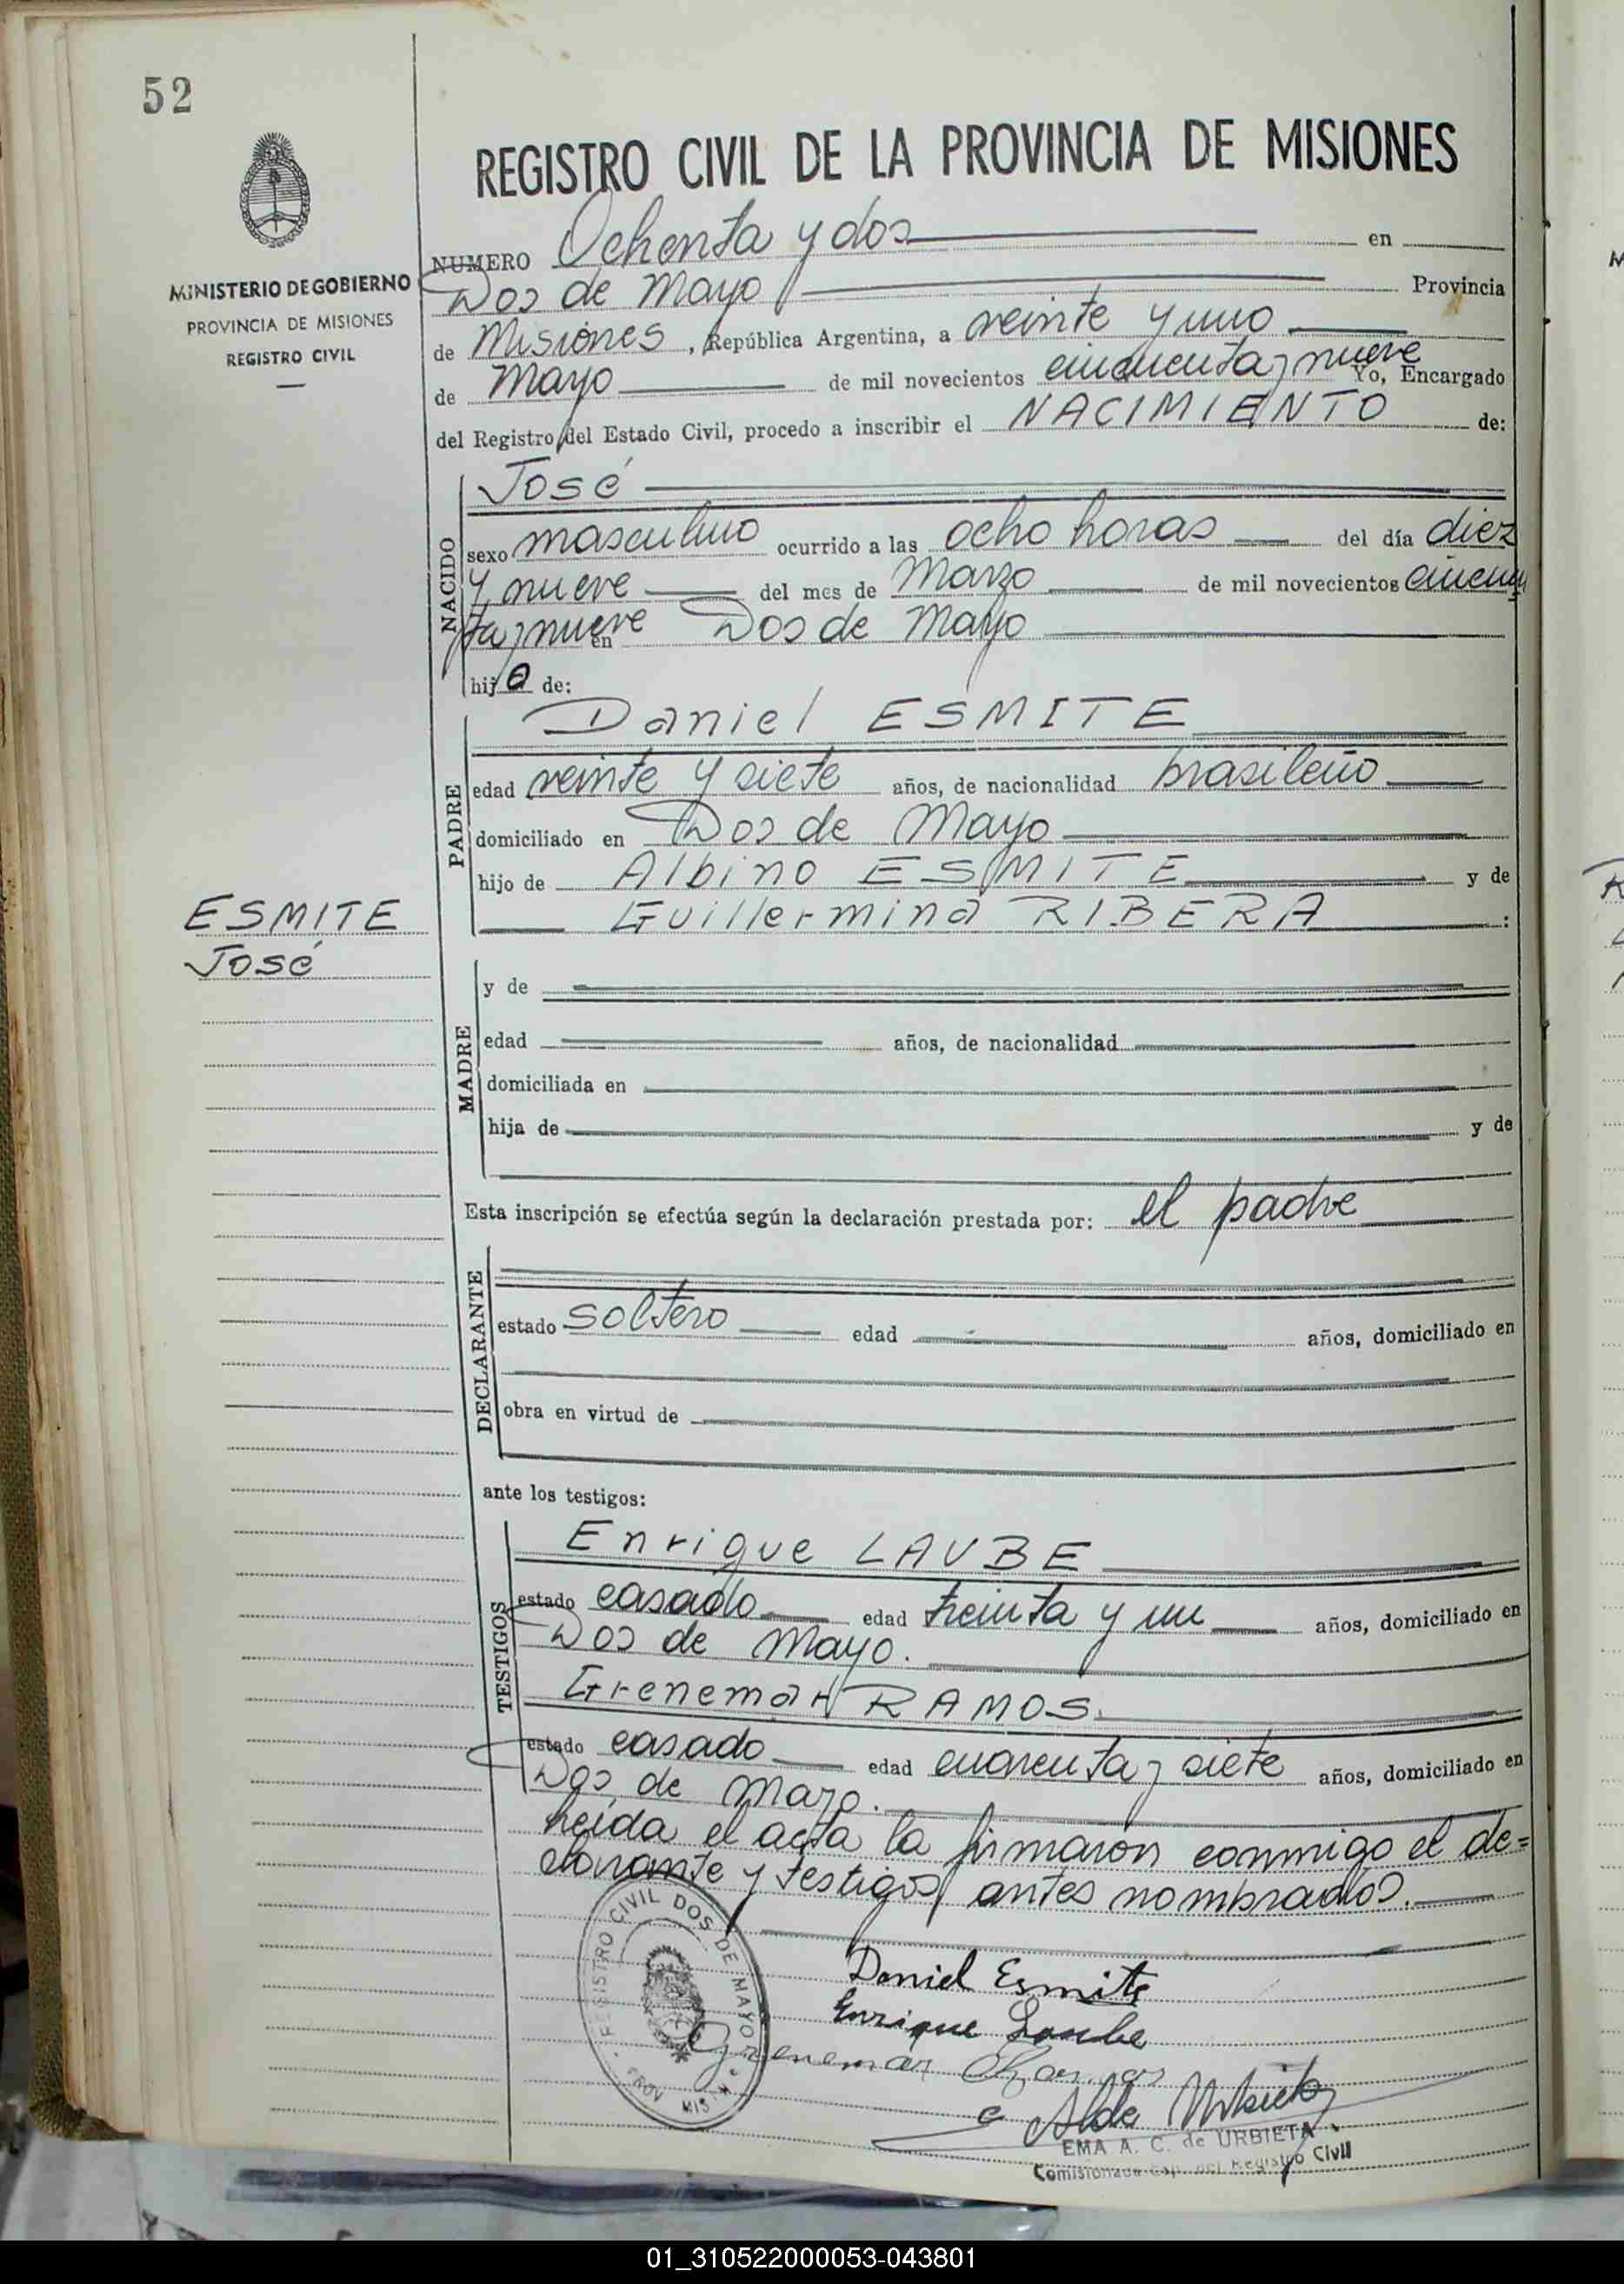 52
MINISTERIO DE GOBIERNO
PROVINCIA DE MISIONES
REGISTRO CIVIL
REGISTRO CIVIL DE LA PROVINCIA DE MISIONES
NUMERO Ochenta y dos en
Dos de Mayo Provincia
de Misiones, República Argentina, a veinte y uno
de Mayo de mil novecientos cincuenta y nueve Yo, Encargado
del Registro del Estado Civil, procedo a inscribir el NACIMIENTO de:
NACIDO
José
sexo masculino ocurrido a las ocho horas del día diez
y nueve del mes de Marzo de mil novecientos cincuen
ta y nueve en Dos de Mayo
hijo de:
PADRE
Daniel ESMITE
edad veinte y siete años, de nacionalidad brasileño
domiciliado en Dos de Mayo
hijo de Albino ESMITE y de
Guillermina RIBERA :
ESMITE
José
MADRE
y de
edad años, de nacionalidad
domiciliada en
hija de y de
Esta inscripción se efectúa según la declaración prestada por: el padre
DECLARANTE
estado soltero edad años, domiciliado en
obra en virtud de
ante los testigos:
TESTIGOS
Enrique LAUBE
estado casado edad treinta y un años, domiciliado en
Dos de Mayo.
Grenemar RAMOS.
estado casado edad cuarenta y siete años, domiciliado en
Dos de Mayo.
heida el acta la firmaron conmigo el de=
clarante y testigos antes nombrados.
REGISTRO CIVIL DOS DE MAYO
PROV. MISIN.
Daniel Esmite
Enrique Laube
Grenemar Ramos
Urbieta
EMA A. C. de URBIETA
Comisionada Esp. del Registro Civil
01_310522000053-043801